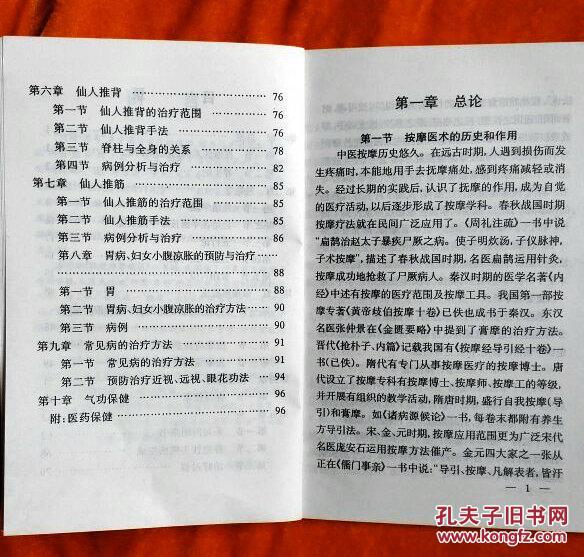 第六章 仙人推背 …………………… 76
第一节 仙人推背的治疗范围 …………… 76
第二节 仙人推背手法 …………………… 76
第三节 脊柱与全身的关系 ……………… 78
第四节 病例分析与治疗 ………………… 82
第七章 仙人推筋 …………………… 85
第一节 仙人推筋的治疗范围 …………… 85
第二节 仙人推筋手法 …………………… 85
第三节 病例分析与治疗 ………………… 86
第八章 胃病、妇女小腹凉胀的预防与治疗……
…………………… 88
第一节 胃 …………………… 88
第二节 胃病、妇女小腹凉胀的治疗方法 … 90
第三节 病例 …………………… 90
第九章 常见病的治疗方法 …………… 91
第一节 常见病的治疗方法 ……………… 91
第二节 预防治疗近视、远视、眼花功法 … 94
第十章 气功保健 …………………… 96
附:医药保健 …………………… 96
第一章 总论
第一节 按摩医术的历史和作用
中医按摩历史悠久。在远古时期,人遇到损伤而发
生疼痛时,本能地用手去抚摩痛处,感到疼痛减轻或消
失。经过长期的实践后,认识了抚摩的作用,成为自觉
的医疗活动,以后逐步形成了按摩学科。春秋战国时期
按摩疗法就在民间广泛应用了。《周礼注疏》一书中说
“扁鹊治赵太子暴疾尸厥之病。使子明炊汤,子仪脉神,
子术按摩”,描述了春秋战国时期,名医扁鹊运用针灸、
按摩成功地抢救了尸厥病人。秦汉时期的医学名著《内
经》中述有按摩的医疗范围及按摩工具。我国第一部按
摩专著《黄帝歧伯按摩十卷》已佚也成书于秦汉。东汉
名医张仲景在《金匮要略》中提到了膏摩的治疗方法。
晋代《抢朴子、内篇》记载我国有《按摩经导引经十卷》一
书(已佚)。隋代有专门从事按摩医疗的按摩博士。唐
代设立了按摩专科有按摩博士、按摩师、按摩工的等级,
并开展有组织的教学活动,隋唐时期,盛行自我按摩(导
引)和膏摩。如《诸病源候论》一书,每卷末都附有养生
方导引法。宋、金、元时期,按摩应用范围更为广泛宋代
名医庞安石运用按摩方法催产。金元四大家之一张从
正在《儒门事亲》一书中说:“导引、按摩、凡解表者,皆汗
— 1 —
孔夫子旧书网
www.kongfz.com